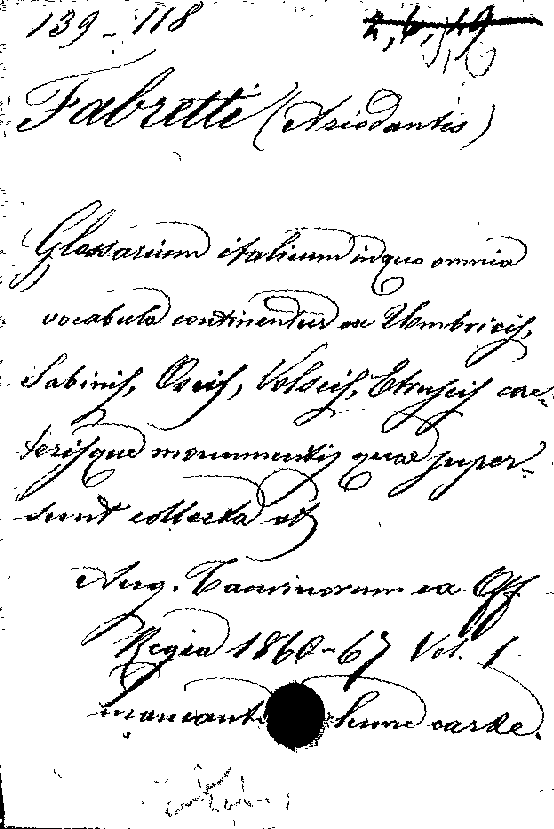 139-118
2,6,19
Fabretti (Ariodantis)
Glossarium italicum in quo omnia
vocabula continentur ex Umbricis,
Sabinis, Oscis, Volscis, Etruscis cae-
terisque monumentis quae super-
sunt collecta et
Aug. Taurinorum ex Off
Regia 1860-67 Vol. 1
mancante carte.